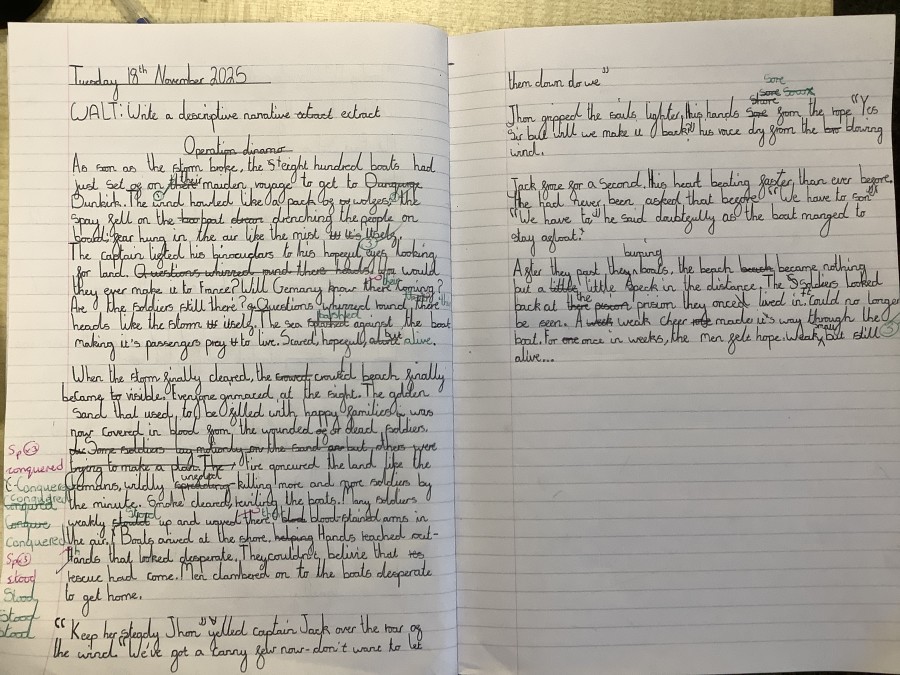 Tuesday 18th November 2025
WALT: Write a descriptive narrative extract extract
Operation dinamo
As son as the storm broke, the eight hundred boats had
just set of on there their maiden voyage to get to
Dunkirk. The wind howled like a pack of wolves, the
spay fell on the boat drenching the people on
board. Fear hung in the air like the mist itself.
The captain lifted his binoculars to his hopeful eyes looking
for land. Questions whirred round there heads. Would
they ever make it to France? Will Germany know there their coming?
Are the soldiers still there? Questions whirred round there
heads like the storm itself. The sea bashed against the boat
making it's passengers pray to live. Scared, hopeful, but alive.
When the storm finally cleared, the crowed crowded beach finally
became to visible. Everyone grimaced at the sight. The golden
sand that used to be filled with happy families was
now covered in blood from the wounded or dead soldiers.
Some soldiers lay motionly on the sand but others were
trying to make a plan. The fire concured the land like the
Germans, wildly spreading killing more and more soldiers by
the minute. Smoke cleared, the boats. Many soldiers
weakly stood up and waved there blood-stained arms in
the air. Boats arrived at the shore, helping Hands reached out-
Hands that looked desperate. They couldn't belivie that
rescue had come. Men clambered on to the boats desperate
to get home.
"Keep her steady Jhon" yelled captain Jack over the roar of
the wind "We've got a canny few now- don't want to let
Sp x3
conquered
Conquered
conquered
Conquere
Conquered
Sp x3
stood
Stood
Stood
stood
them down do we"
Sore
Jhon gripped the sails tighter, his hands Sore from the rope "Yes
Sir but will we make it back" his voice dry from the blowing
wind.
Jack froze for a second, his heart beating faster than ever before.
The had never been asked that before "We have to son"
"We have to" he said doubtfully as the boat manged to
stay afloat.
burning
After they past they boats, the beach beach became nothing
but a little little speck in the distance. The Soldiers looked
back at the prison they onced lived in. Could no longer
be seen. A week weak cheer made it's way through the
boat. For one once in weeks, the men felt hope. Weak, but still
alive...